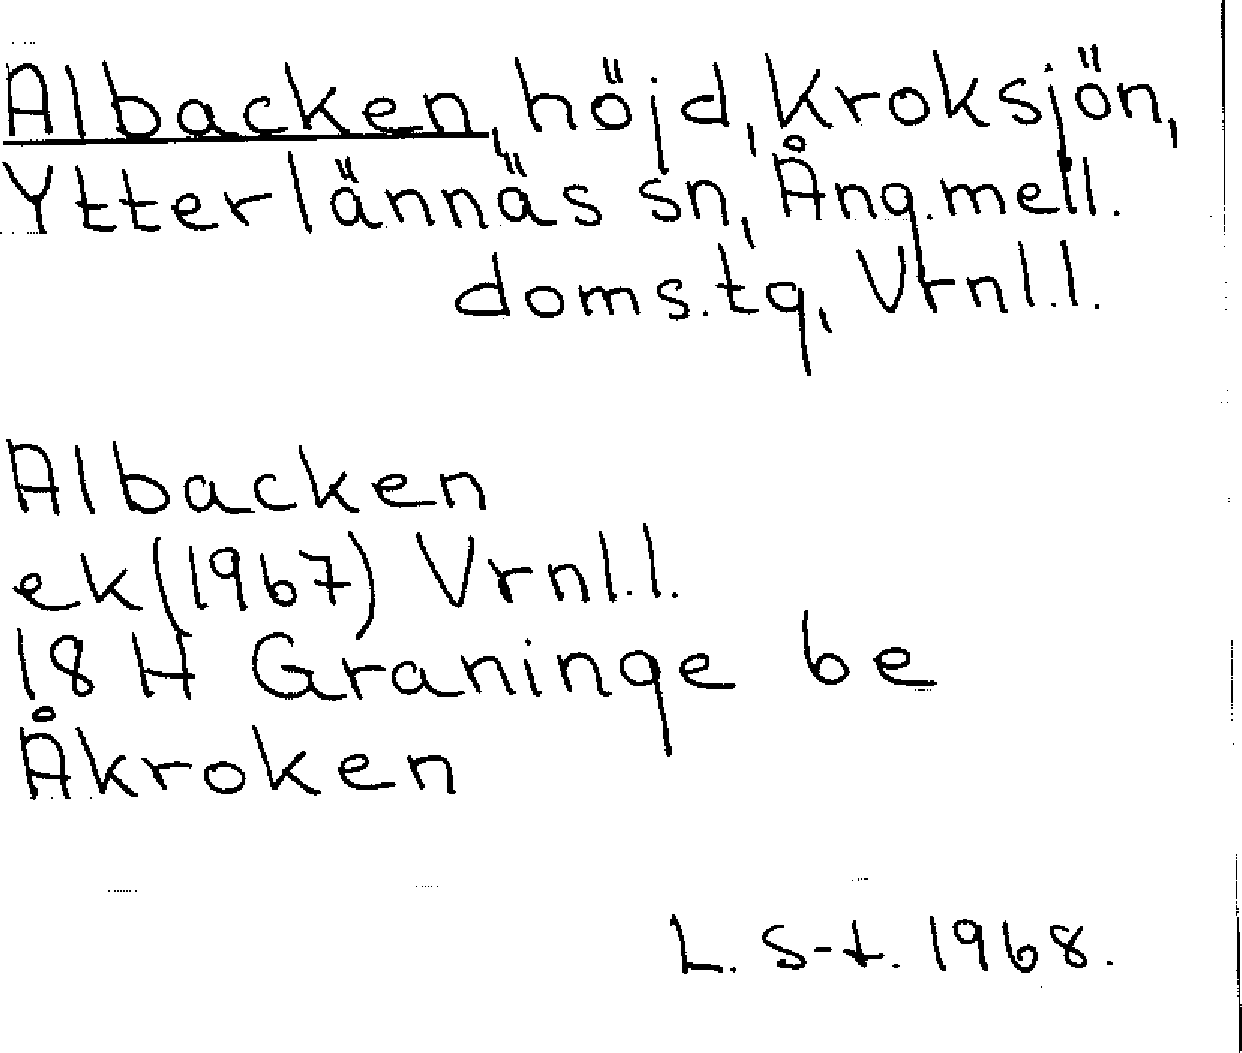 Albacken, höjd, Kroksjön,
Ytterlännäs sn, Ång.mell.
doms.tg, Vrnl.l.
Albacken
ek (1967) Vrnl.l.
18 H Graninge be
Åkroken
L. S-t. 1968.